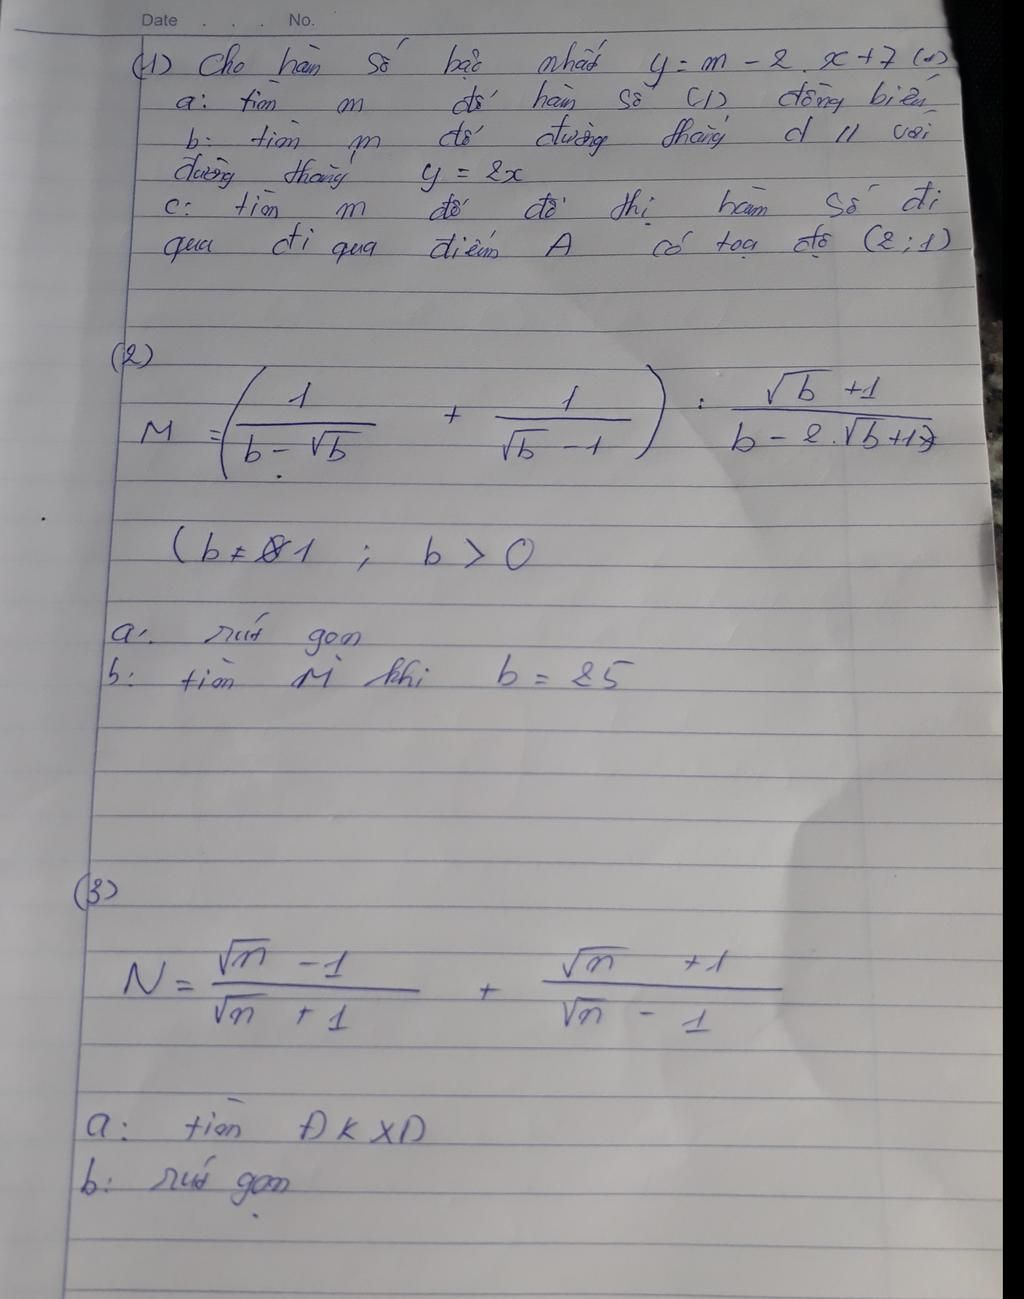 Date . . . No.
(1) Cho hàn số bậc nhất y = m - 2 . x + 7 (1)
a: tìm m để hàn số (1) đồng biến
b: tìm m để đường thẳng d // với
đường thẳng y = 2x
c: tìm m để đồ thị hàm số đi
qua đi qua điểm A có toạ độ (2 ; 1)
(2)
M = ( 1 / (b - √b) + 1 / (√b - 1) ) : (√b + 1) / (b - 2 . √b + 1)
( b ≠ 1 ; b > 0
a: rút gọn
b: tìm M khi b = 25
(3)
N = (√n - 1) / (√n + 1) + (√n + 1) / (√n - 1)
a: tìm ĐKXD
b: rút gọn